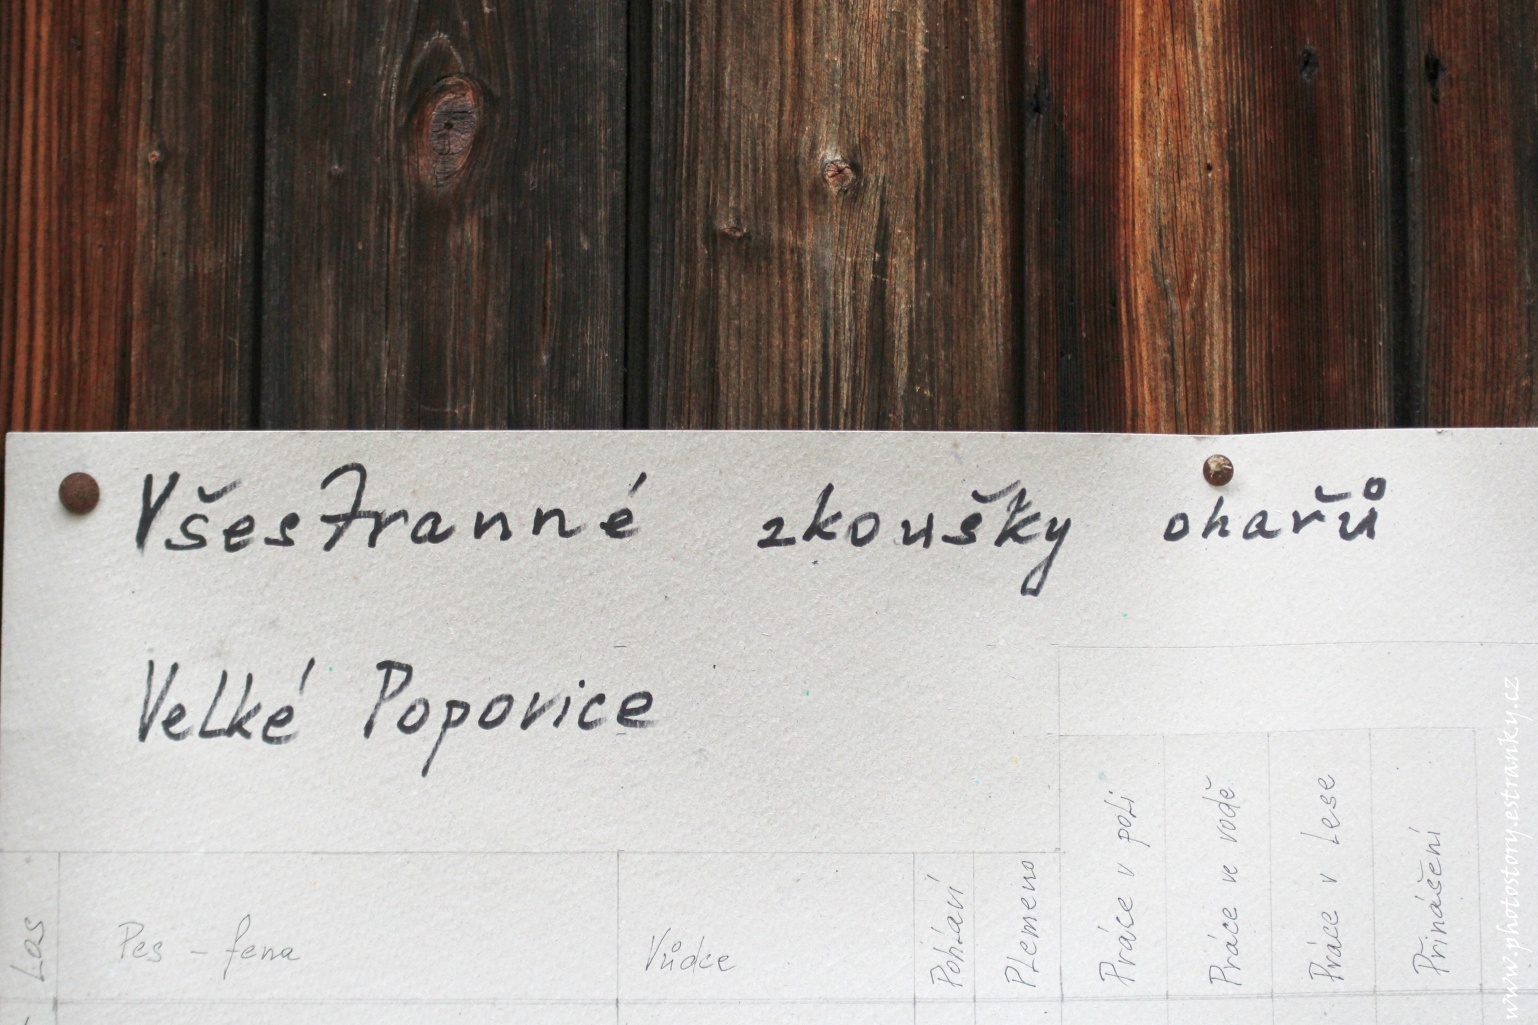 Všestranné zkoušky ohařů
Velké Popovice
Los
Pes - fena
Vůdce
Pohlaví
Plemeno
Práce v poli
Práce ve vodě
Práce v lese
Přinášení
www.photostory.estranky.cz